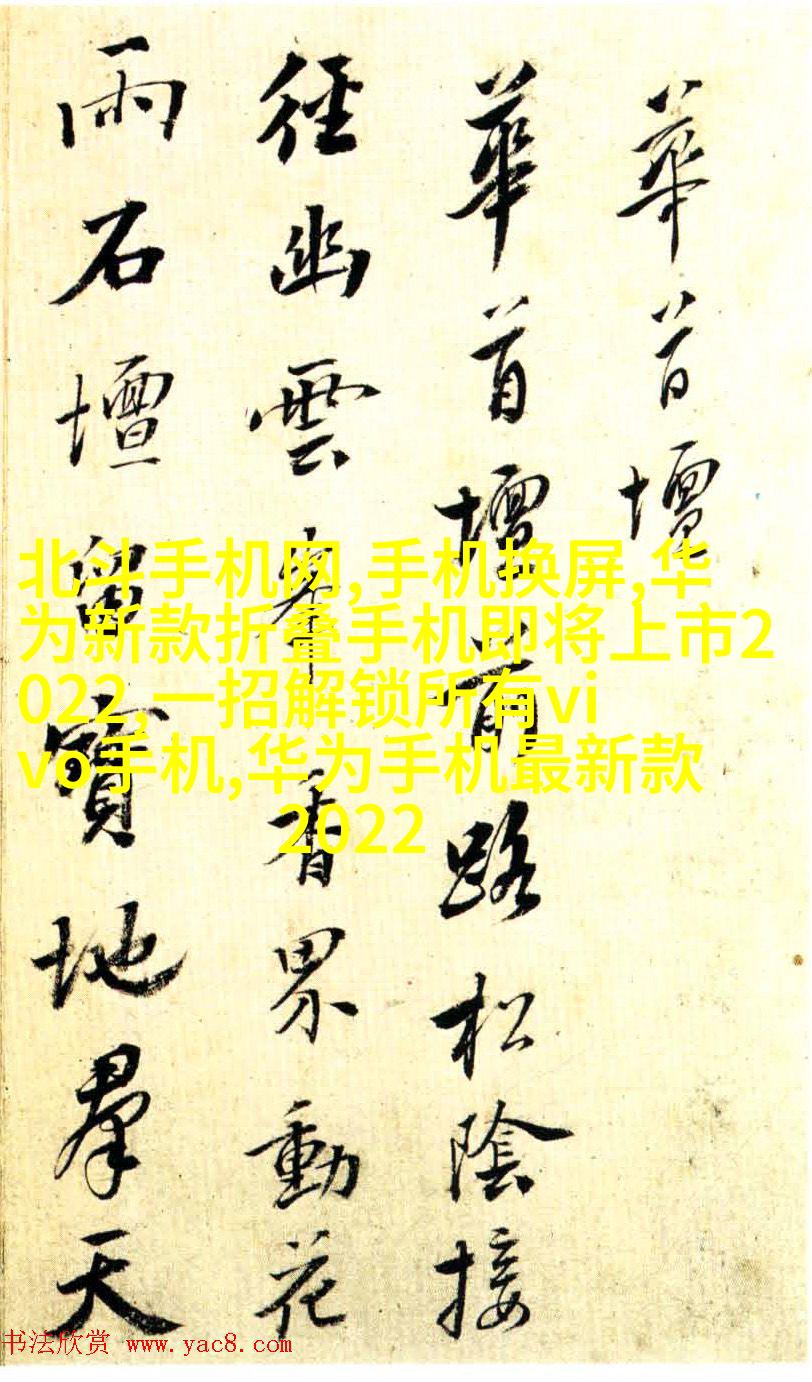 華首壇
華首壇前路松陰接
徑幽雲香界動花
雨石壇留寶地羣天
北斗手机网,手机换屏,华
为新款折叠手机即将上市2
022,一招解锁所有vi
vo手机,华为手机最新款
2022
书法欣赏 www.yac8.com